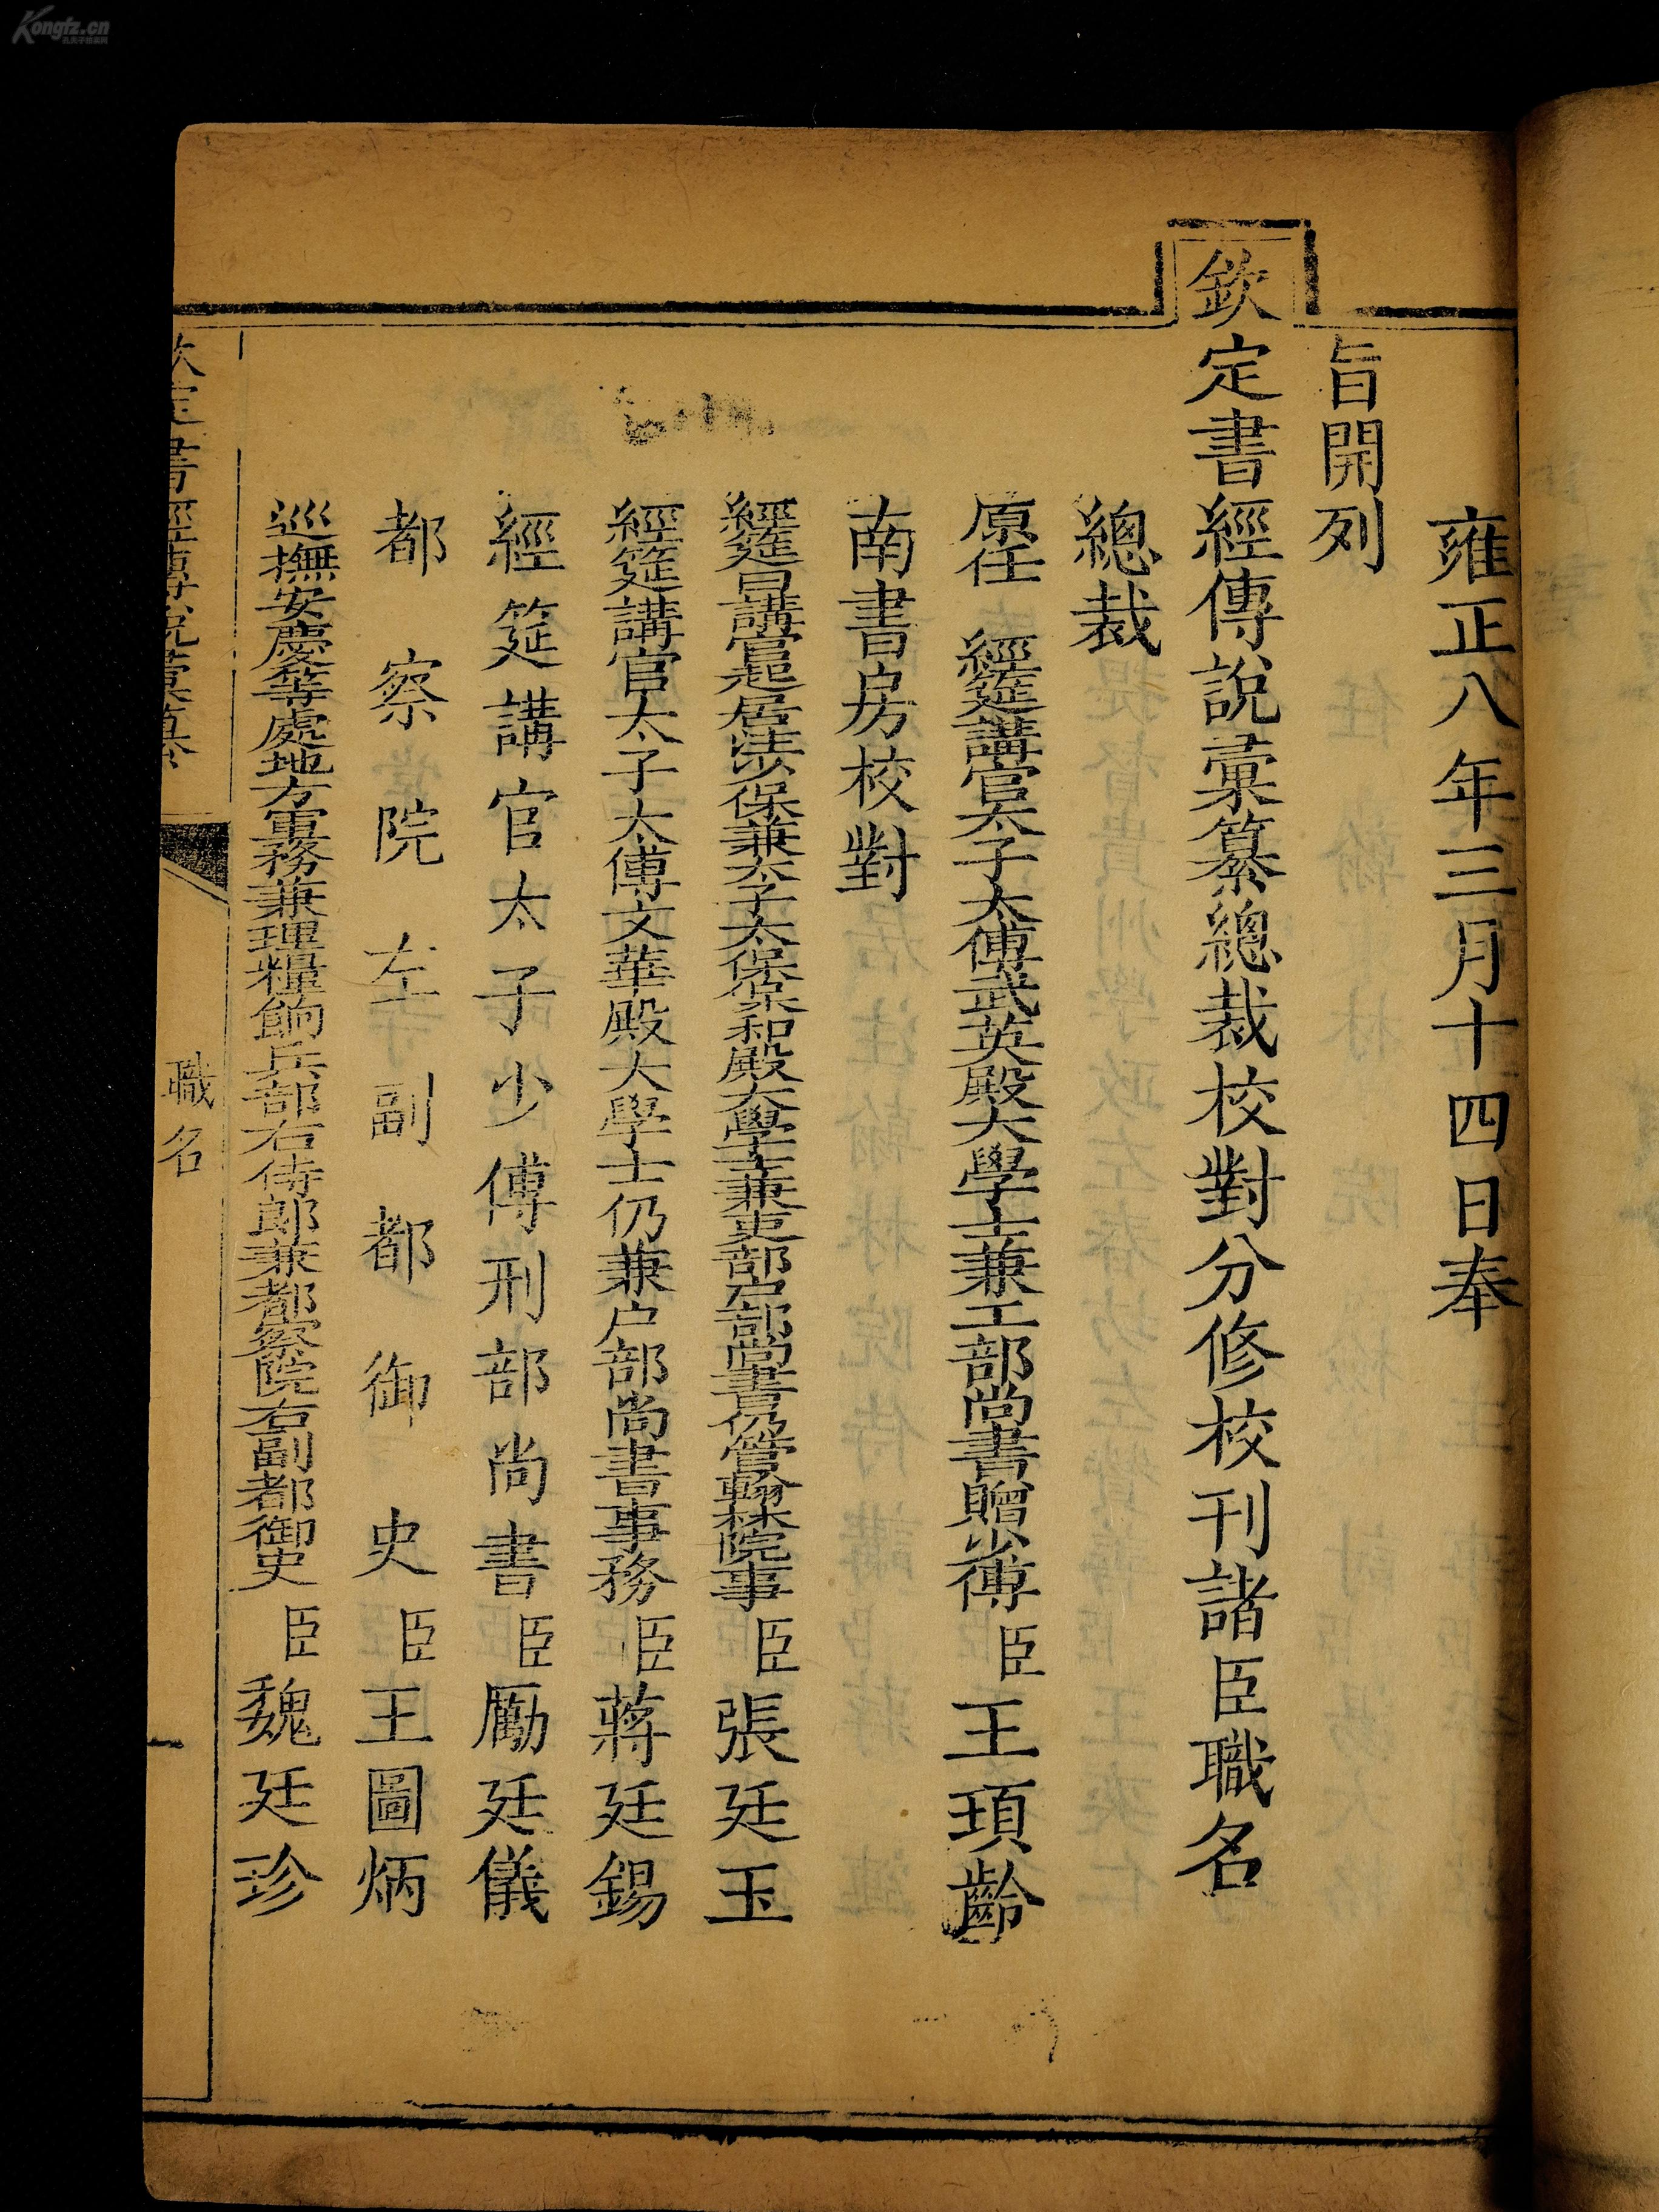 雍正八年三月十四日奉
旨開列
欽定書經傳說彙纂總裁校對分修校刊諸臣職名
總裁
原任 經筵講官太子太傅武英殿大學士兼工部尚書贈少傅臣王頊齡
南書房校對
經筵日講官起居注少保兼太子太保保和殿大學士兼吏部戶部尚書仍管翰林院事臣張廷玉
經筵講官太子太傅文華殿大學士仍兼户部尚書事務臣蔣廷錫
經筵講官太子少傅刑部尚書臣勵廷儀
都察院左副都御史臣王圖炳
巡撫安慶等處地方軍務兼理糧餉兵部右侍郎兼都察院右副都御史臣魏廷珍
欽定書經傳說彙纂 職名 一
Kongfz.cn